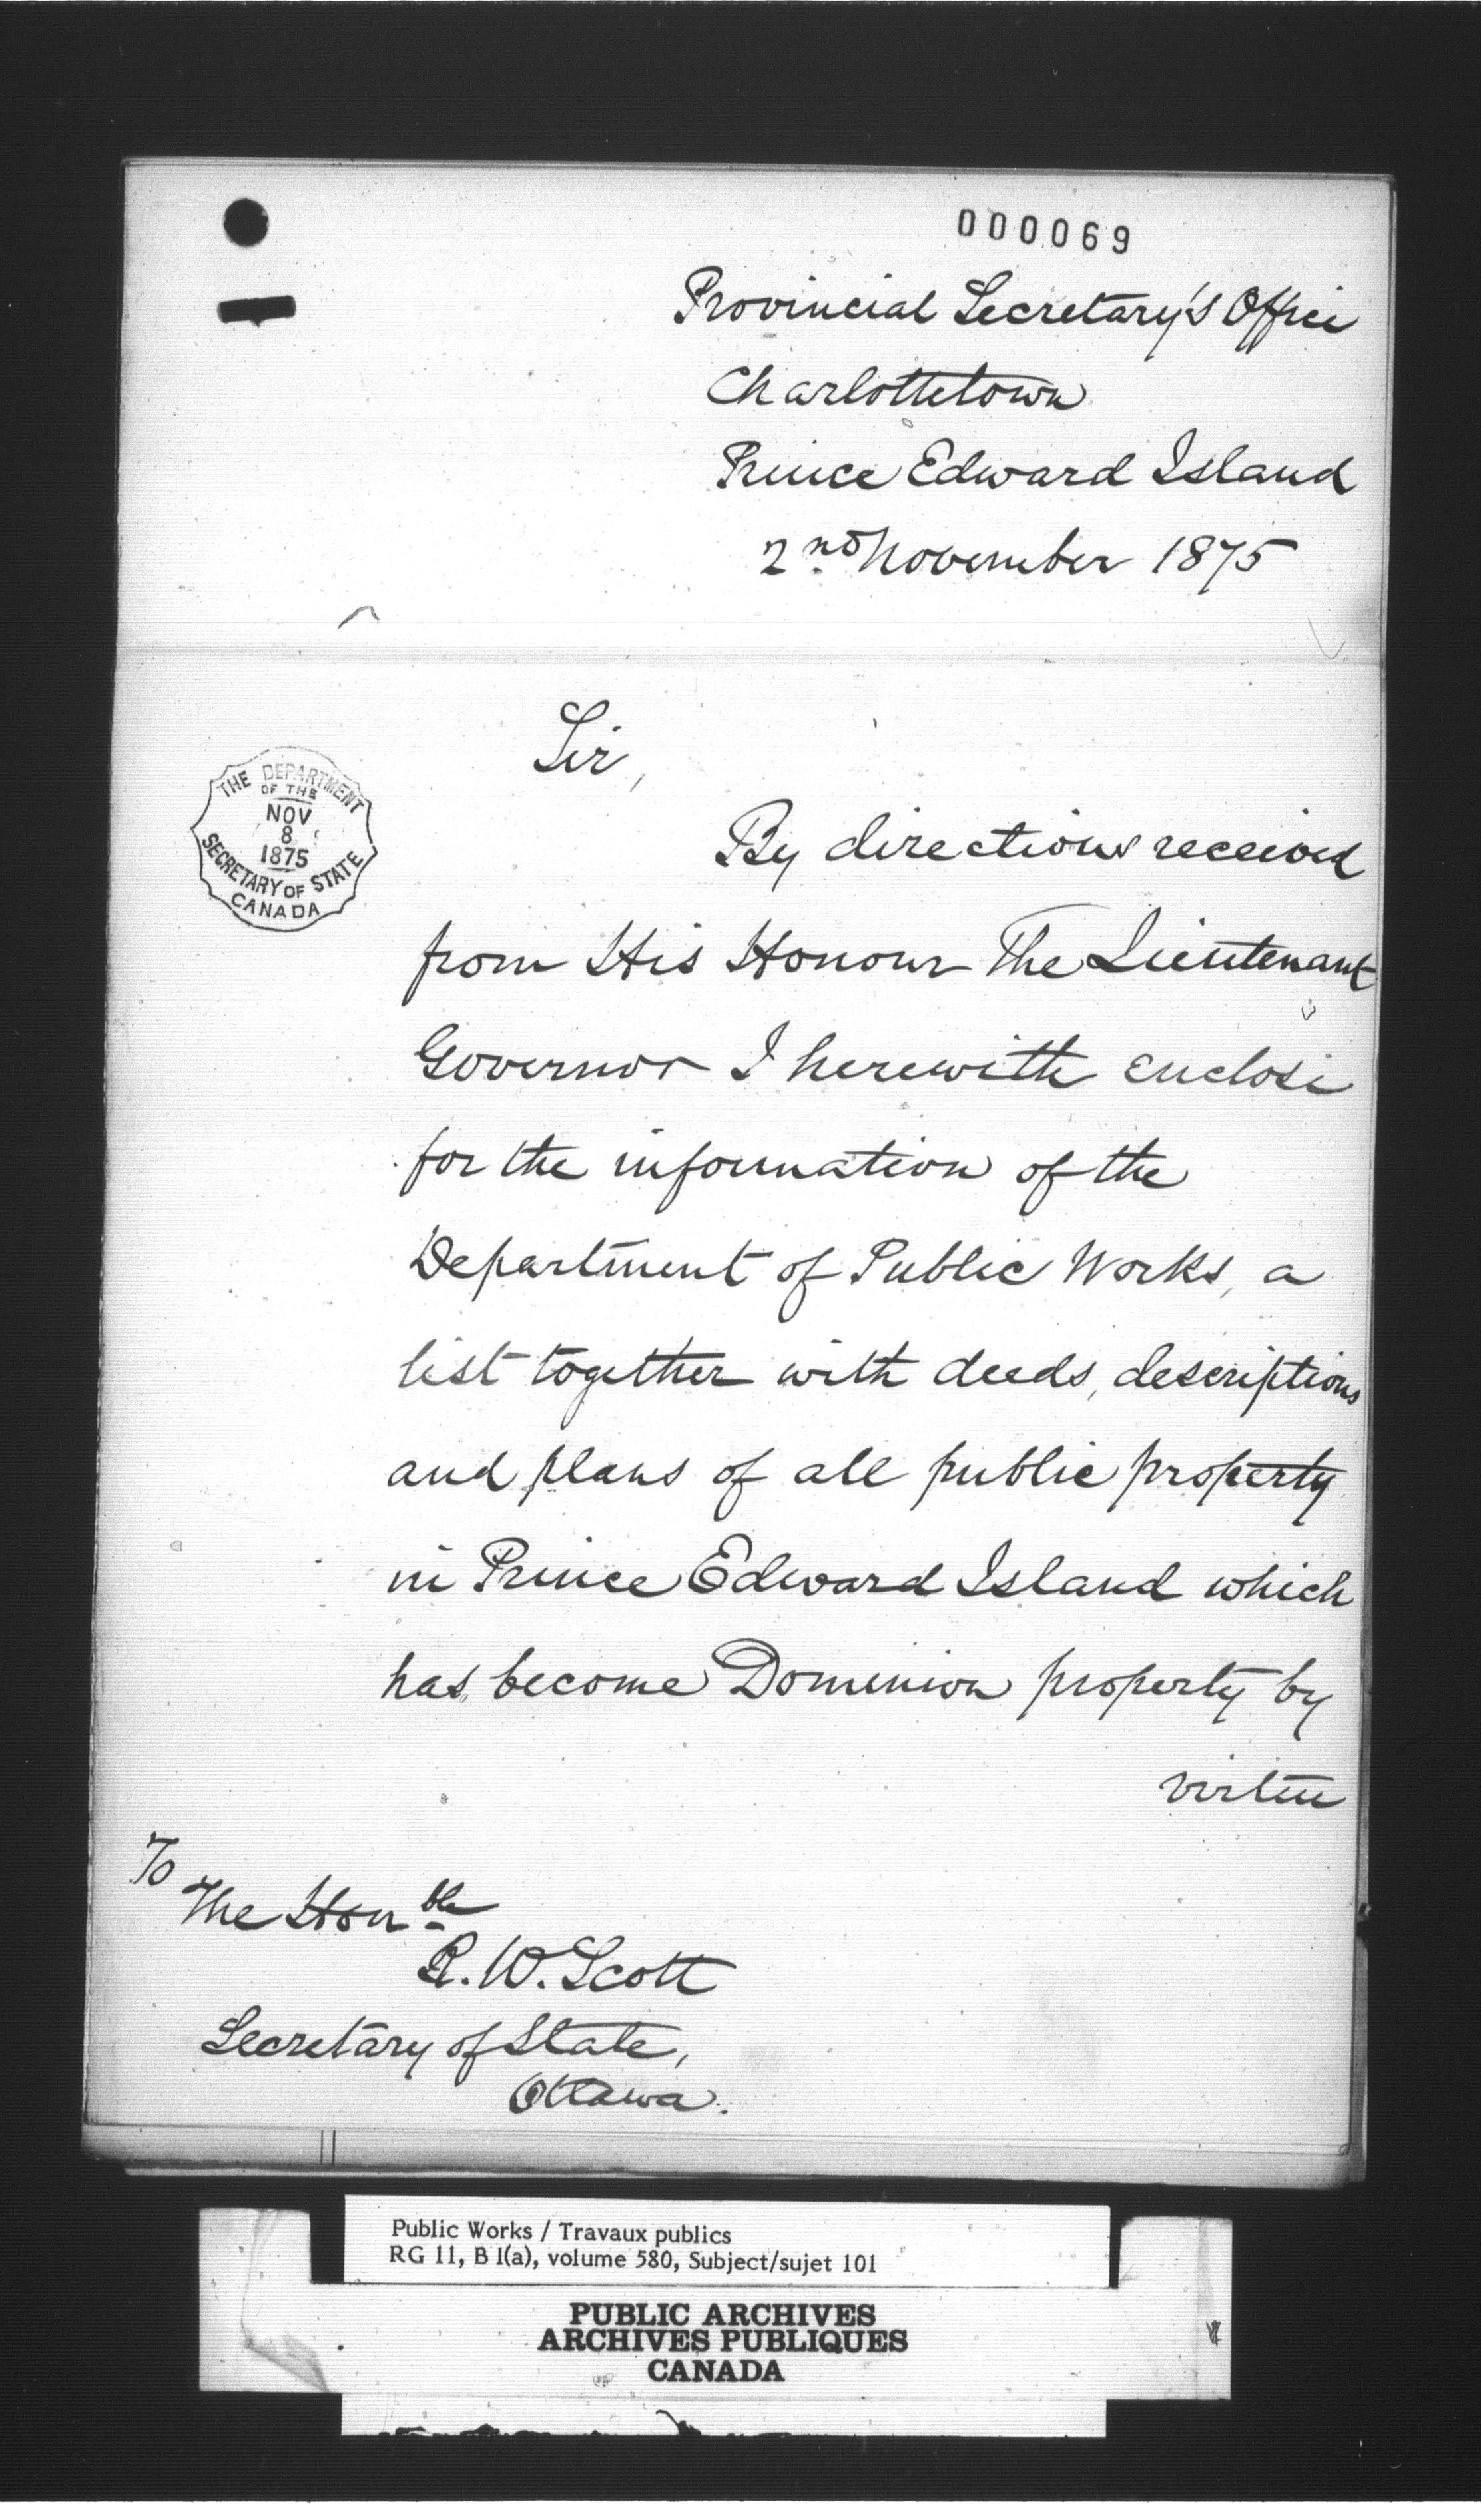 000069
Provincial Secretary's Office
Charlottetown
Prince Edward Island
2nd November 1875
Sir,
THE DEPARTMENT
OF THE
NOV
8
1875
SECRETARY OF STATE
CANADA
By directions received
from His Honour The Lieutenant
Governor I herewith enclose
for the information of the
Department of Public Works, a
list together with deeds, descriptions
and plans of all public property
in Prince Edward Island which
has become Dominion property by
virtue
To
The Honble
R. W. Scott
Secretary of State,
Ottawa.
Public Works / Travaux publics
RG 11, B 1(a), volume 580, Subject/sujet 101
PUBLIC ARCHIVES
ARCHIVES PUBLIQUES
CANADA